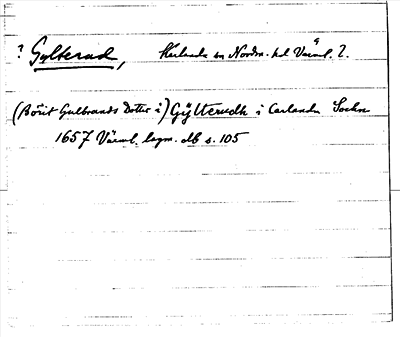 ? Gylterud, Karlanda sn Nordm. hd Värml. l.
(Börit Gulbrands Dotter i) Gÿlterudh i Carlanda Sochn
1657 Värml. lagm. db s. 105